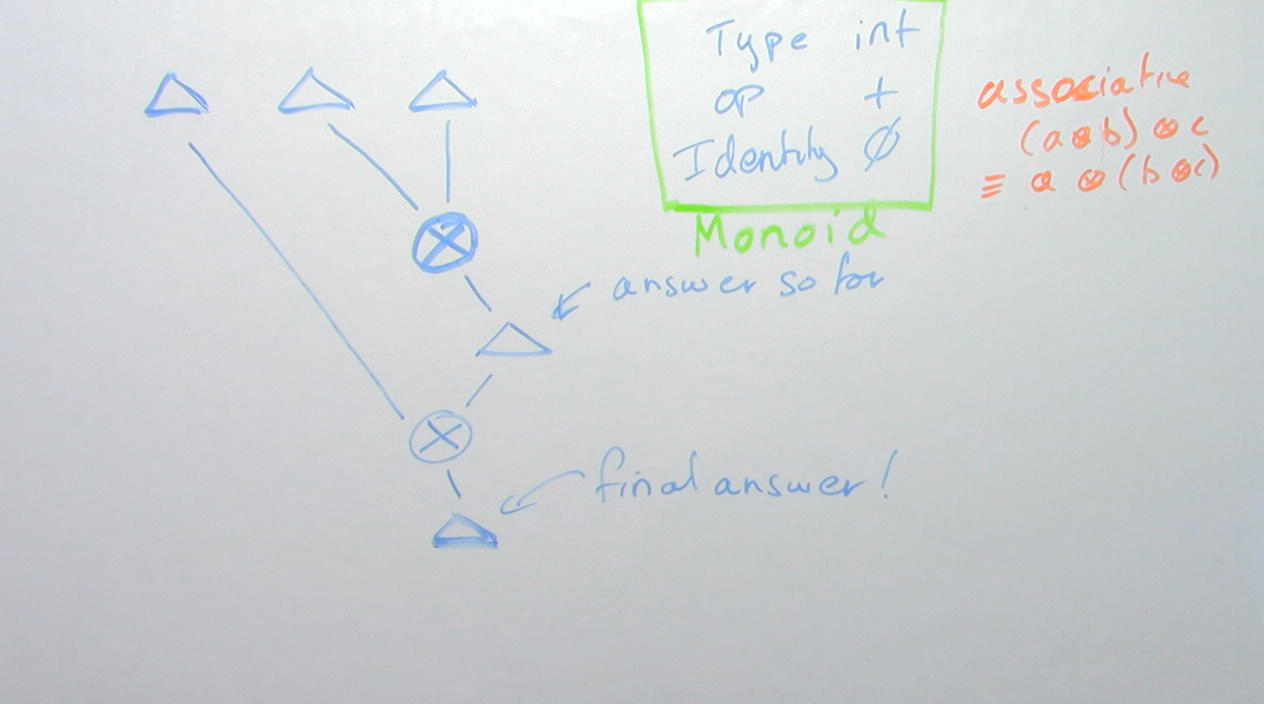 Type int
op +
Identity Ø
Monoid
associative
(a⊗b) ⊗ c
≡ a ⊗ (b ⊗ c)
answer so far
final answer!